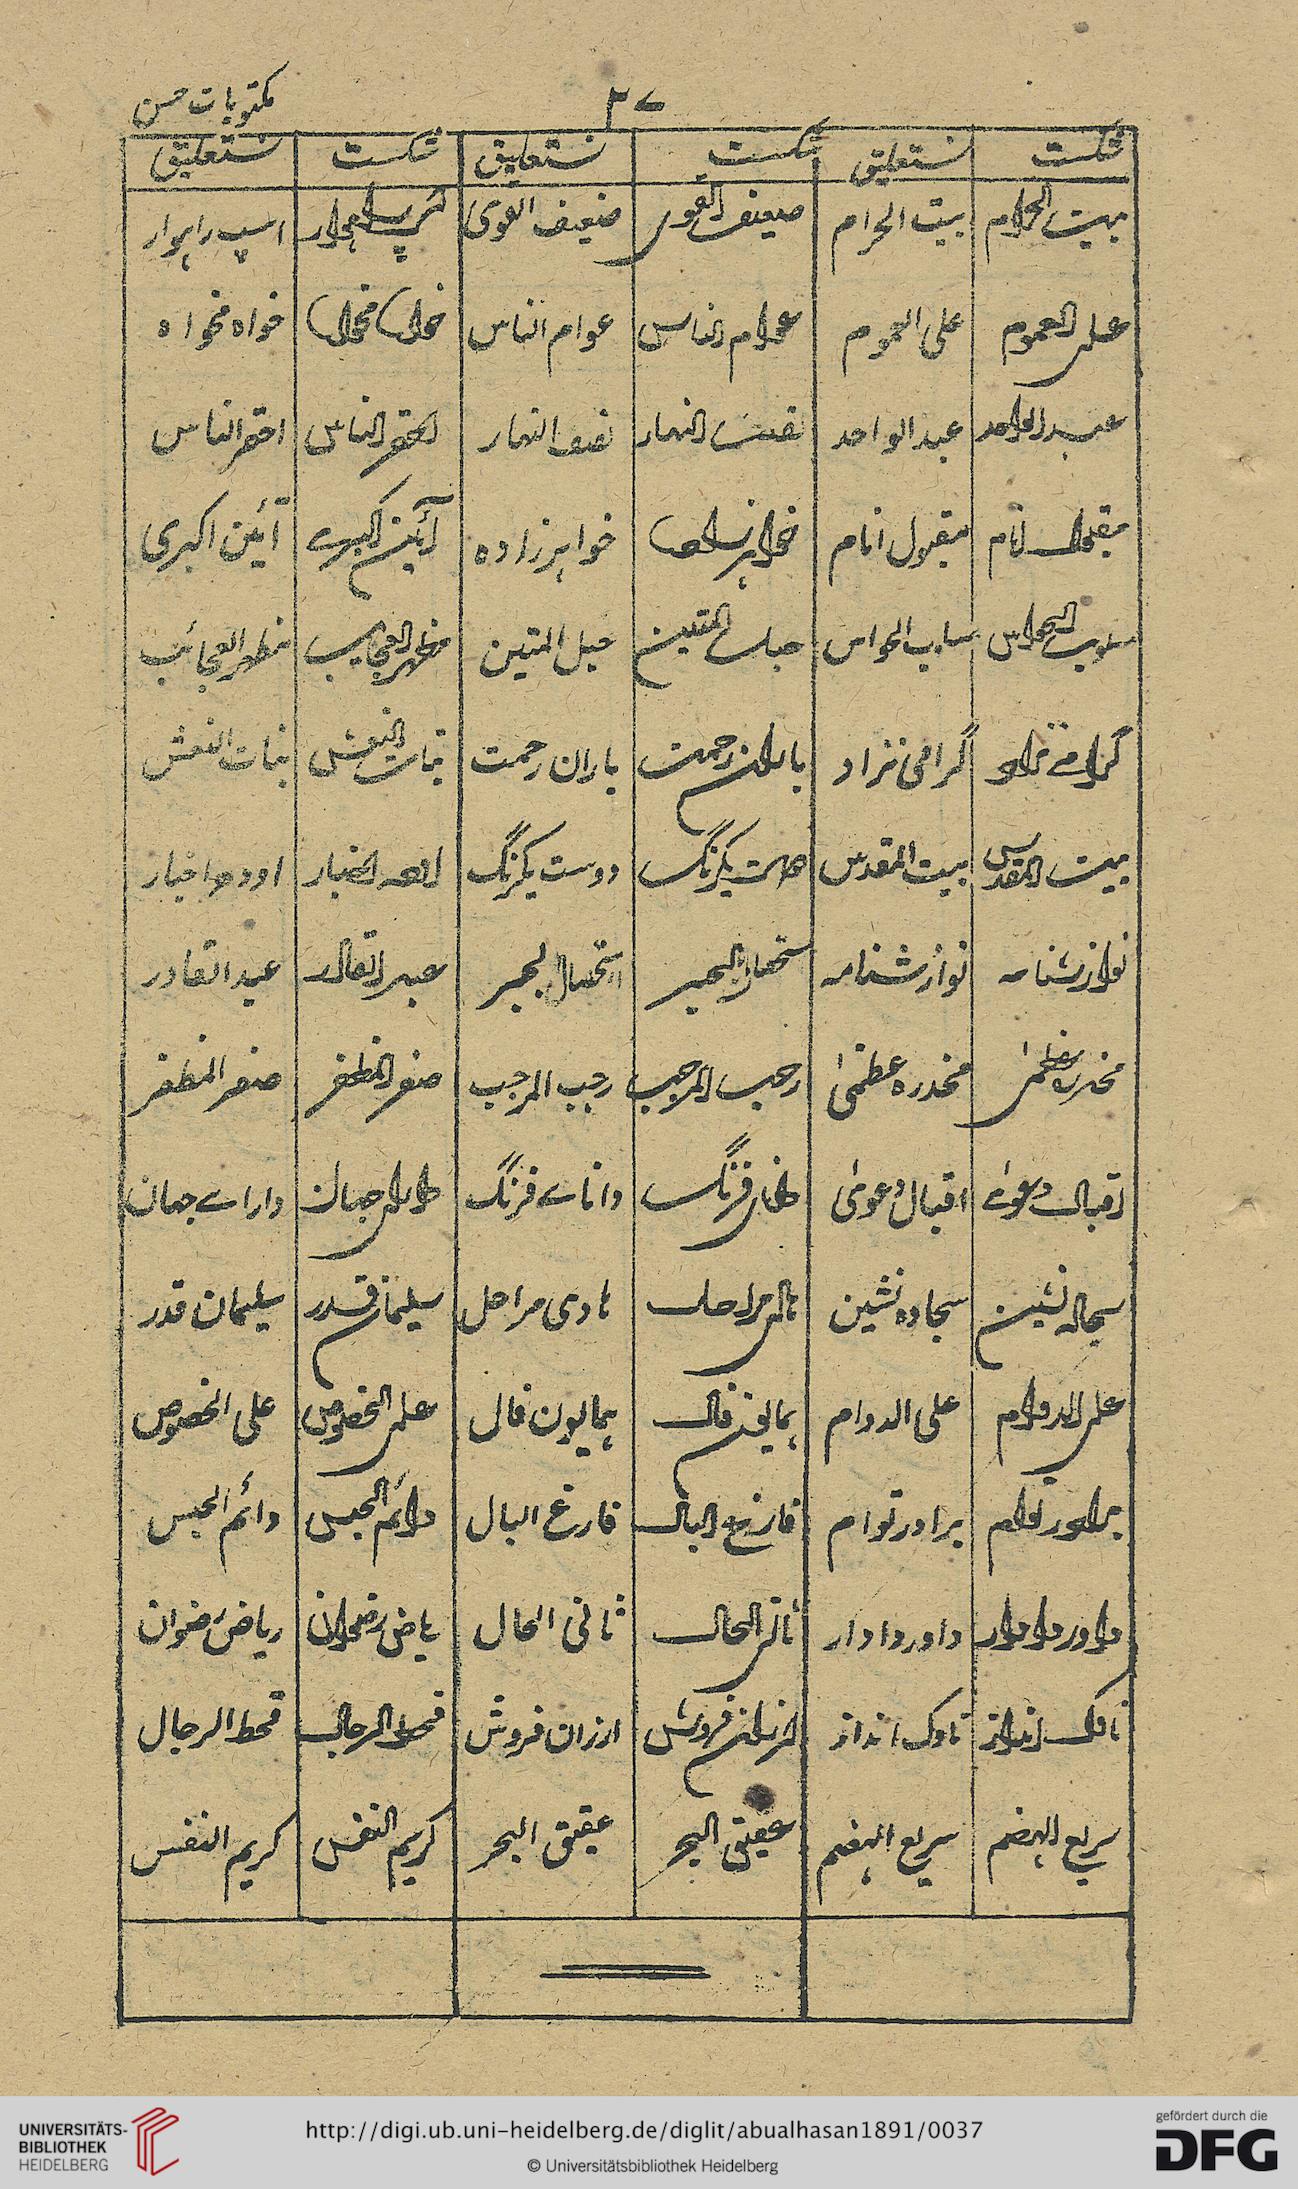 مکتوبات حسن
۳۷
شکست نستعلیق شکست نستعلیق شکست نستعلیق
بیت الحرام بیت الحرام ضعیف القوی ضعیف القوی اسپ راہوار اسپ راہوار
علی العموم علی العموم عوام الناس عوام الناس خواہ مخواہ خواہ مخواہ
عبد الواحد عبد الواحد نصف النہار نصف النہار احقر الناس احقر الناس
مقبول انام مقبول انام خواہرزادہ خواہرزادہ آئین اکبری آئین اکبری
سلوب الحواس حبل المتین حبل المتین مظہر العجایب مظہر العجائب
گرامی نژاد گرامی نژاد باران رحمت باران رحمت بنات النعش بنات النعش
بیت المقدس بیت المقدس دوست یکرنگ دوست یکرنگ اودھ اخبار اودھ اخبار
نوازشنامہ نوازشنامہ استحصال بجبر عبد القادر عبد القادر
مخدرہ عظمیٰ مخدرہ عظمیٰ رجب المرجب رجب المرجب صفر المظفر صفر المظفر
اقبال دعویٰ اقبال دعویٰ دانای فرنگ دانائے فرنگ دارای جہان دارائے جہان
سجادہ نشین سجادہ نشین ہادی مراحل ہادی مراحل سلیمان قدر سلیمان قدر
علی الدوام علی الدوام ہمایون فال ہمایون فال علی الخصوص علی الخصوص
برادر توام برادر توام فارغ البال فارغ البال دائم الحبس دائم الحبس
داور دادار داور دادار ثانی الحال ثانی الحال ریاض رضوان ریاض رضوان
ناوک انداز ناوک انداز ارزان فروش ارزان فروش قحط الرجال قحط الرجال
سریع الہضم سریع الہضم عمیق البحر عمیق البحر کریم النفس کریم النفس
UNIVERSITÄTS-
BIBLIOTHEK
HEIDELBERG
http://digi.ub.uni-heidelberg.de/diglit/abualhasan1891/0037
© Universitätsbibliothek Heidelberg
gefördert durch die
DFG